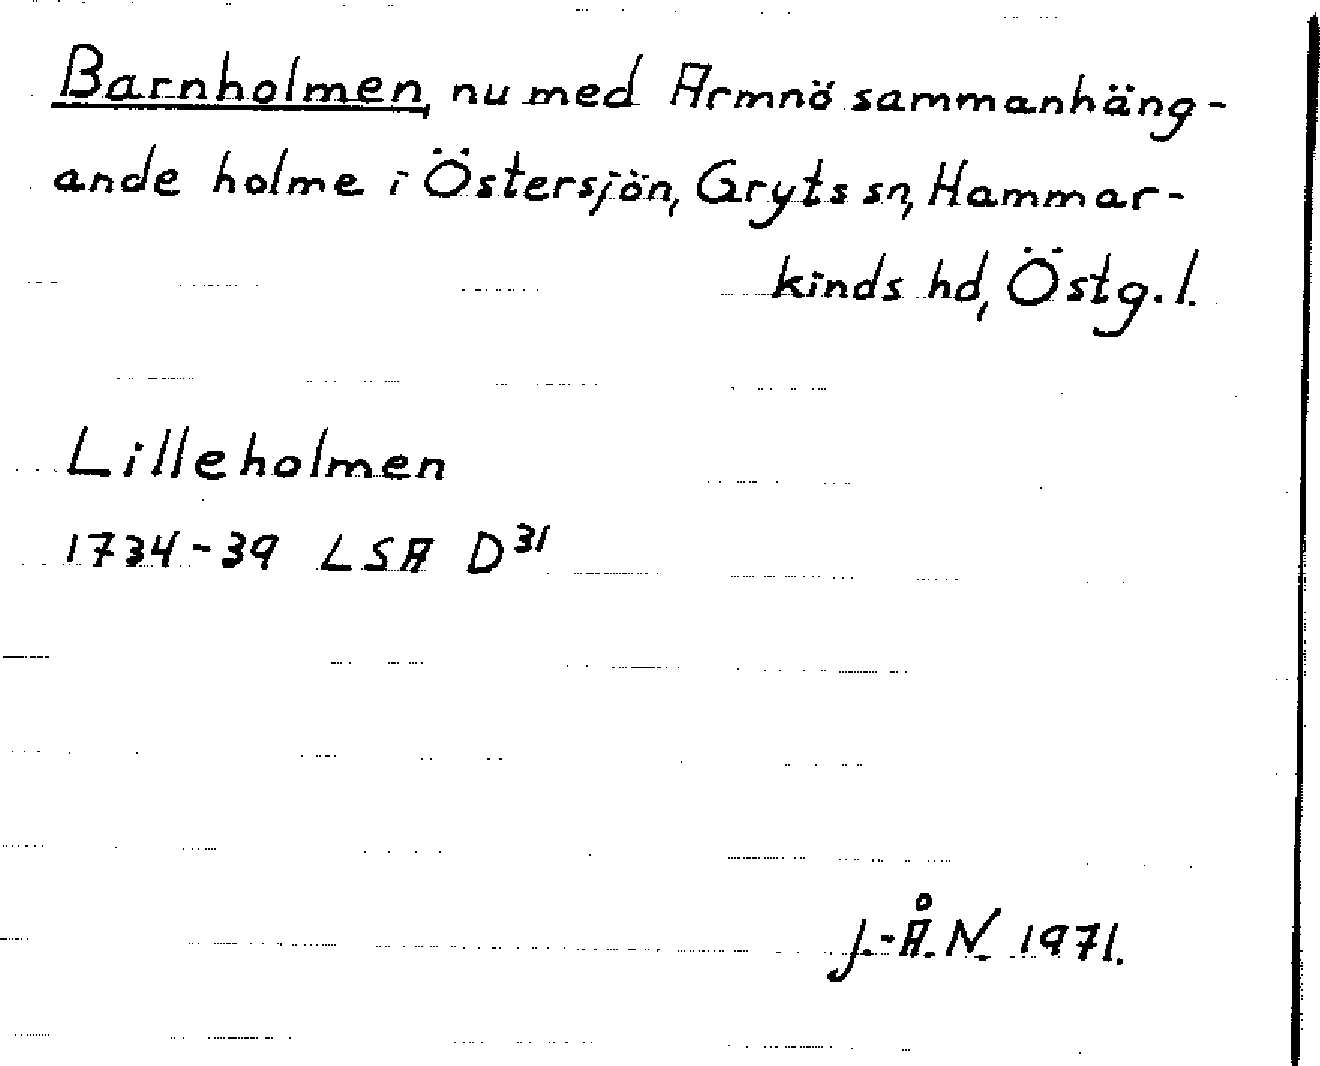 Barnholmen, nu med Armnö sammanhäng-
ande holme i Östersjön, Gryts sn, Hammar-
kinds hd, Östg. l.
Lilleholmen
1734-39 LSA D31
J.-Å. N. 1971.